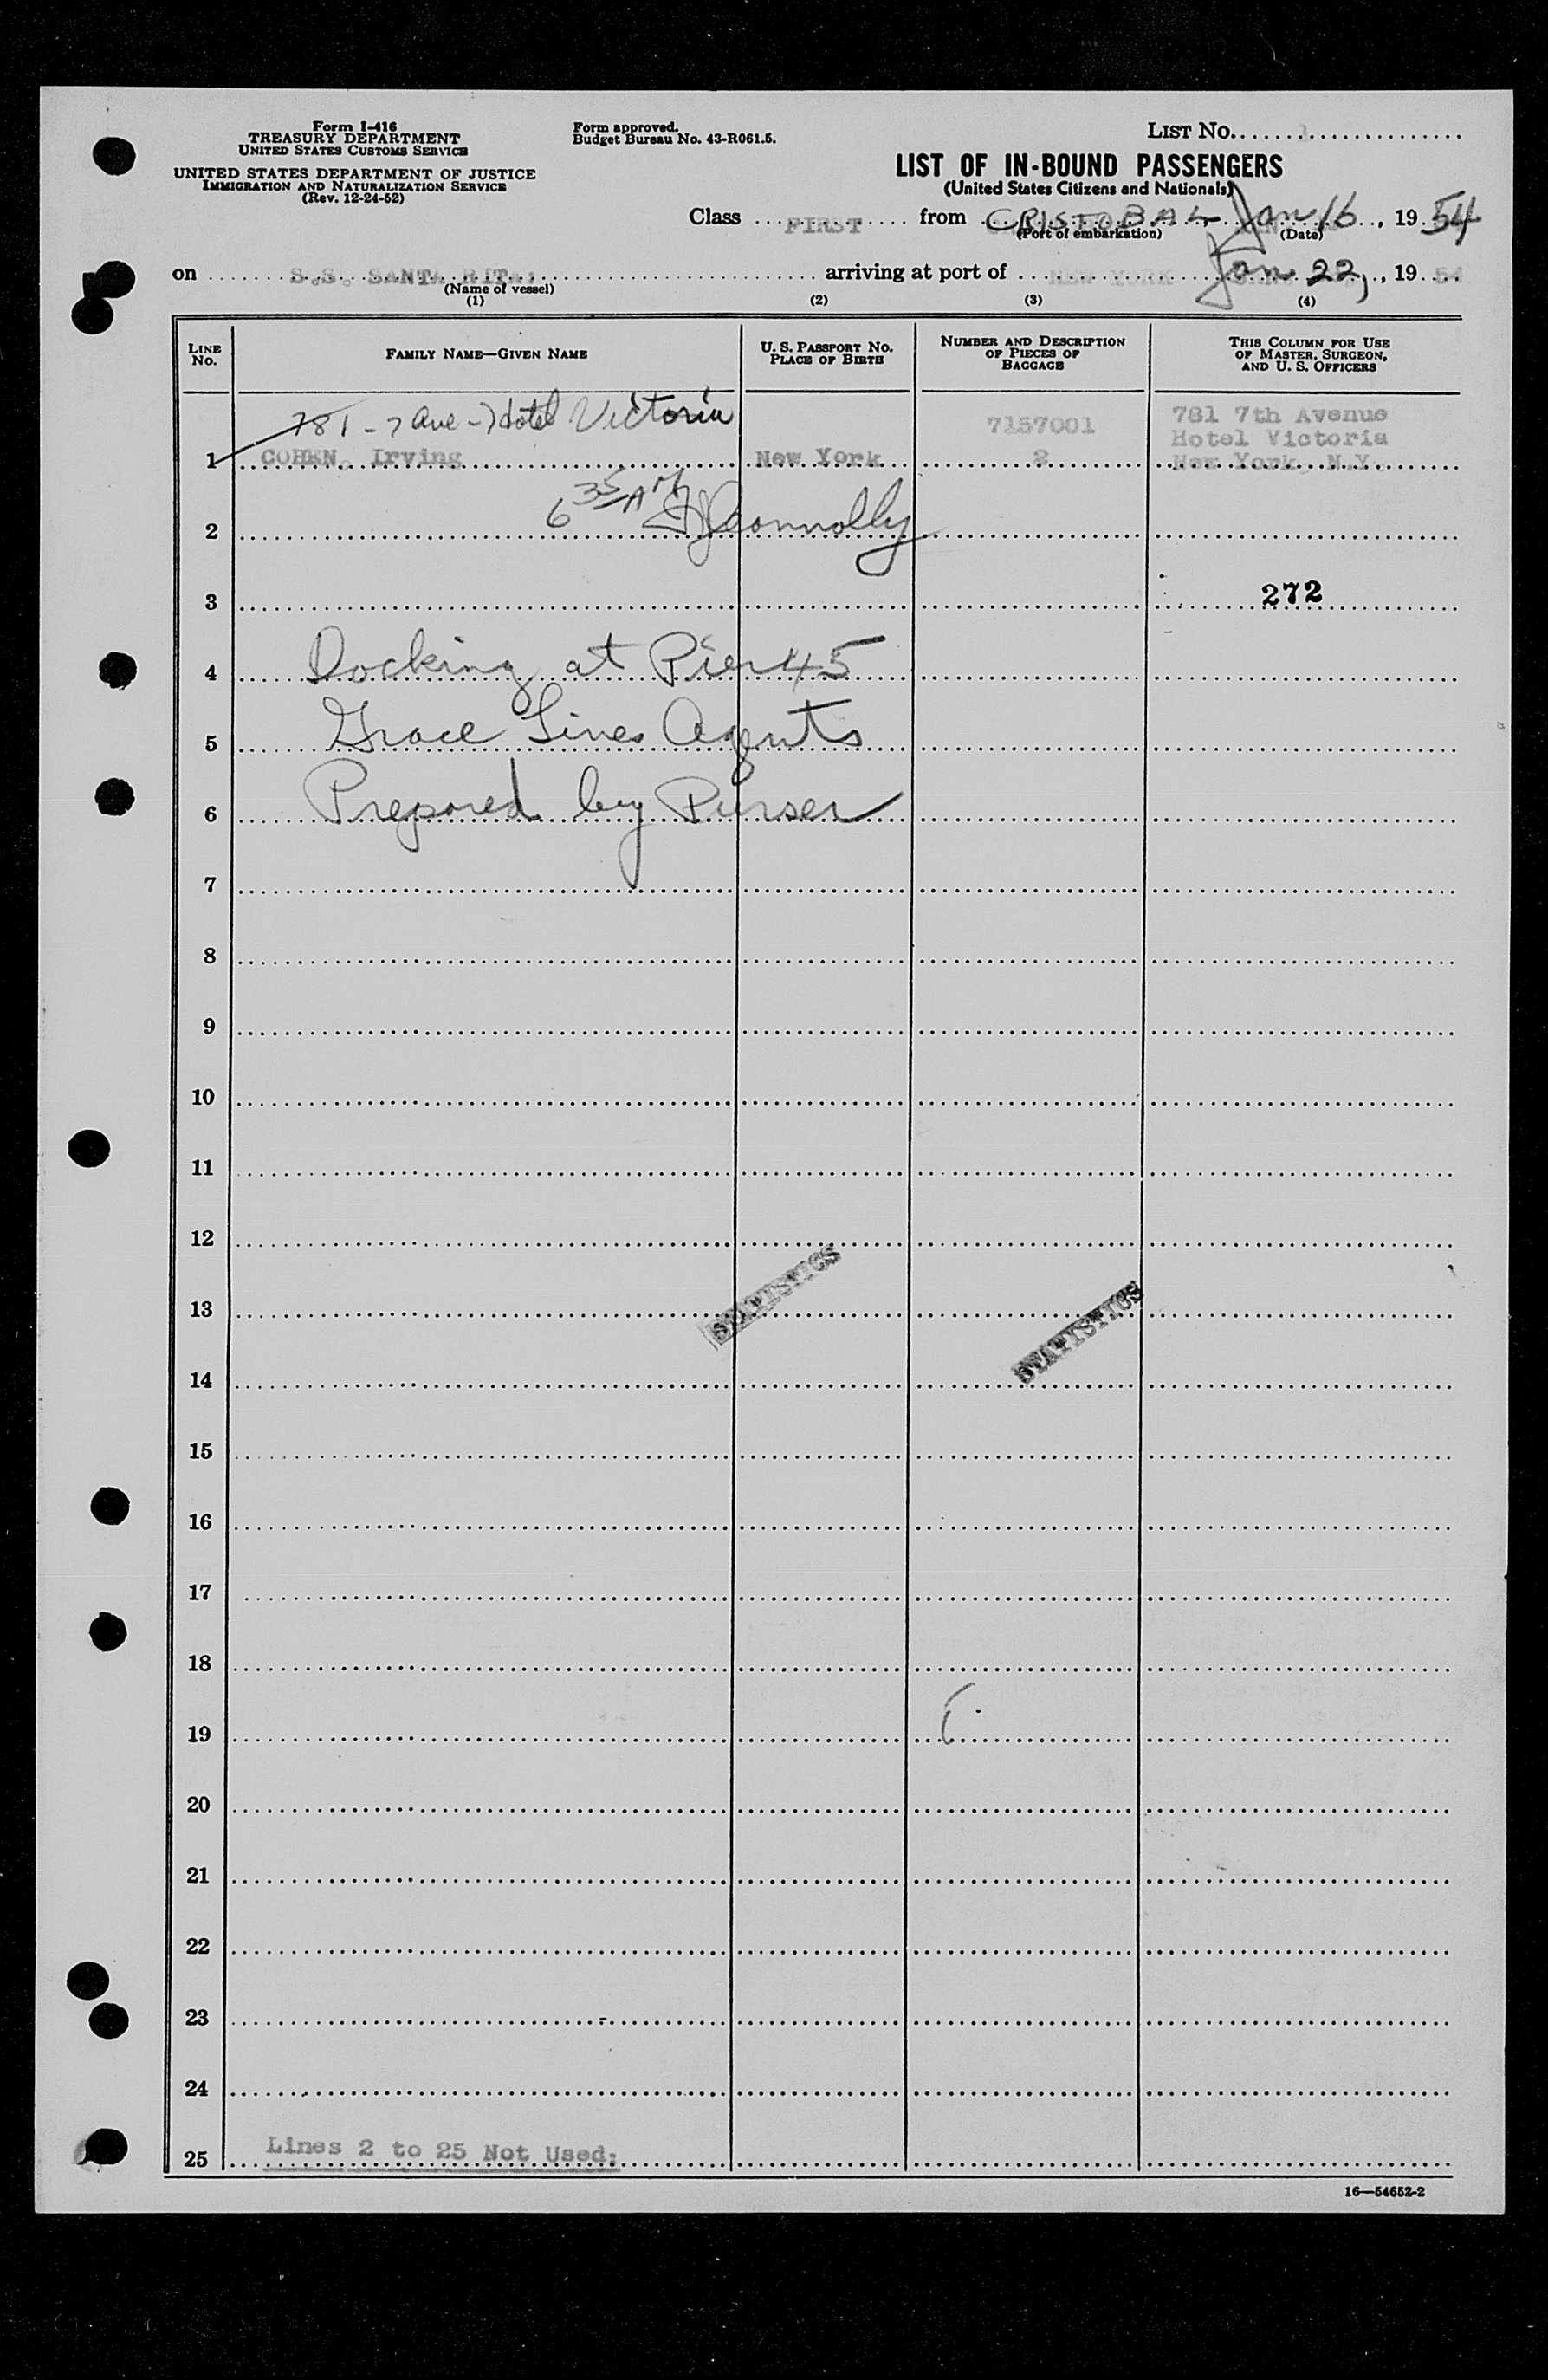 Form I-416
TREASURY DEPARTMENT
UNITED STATES CUSTOMS SERVICE
UNITED STATES DEPARTMENT OF JUSTICE
IMMIGRATION AND NATURALIZATION SERVICE
(Rev. 12-24-52)
Form approved.
Budget Bureau No. 43-R061.5.
LIST NO.
LIST OF IN-BOUND PASSENGERS
(United States Citizens and Nationals)
Class FIRST from CRISTOBAL Jan 16, 1954
(Port of embarkation) (Date)
on S.S. SANTA RITA: arriving at port of NEW YORK Jan 22, 1954
(Name of vessel)
(1) (2) (3) (4)
LINE NO.
FAMILY NAME—GIVEN NAME
U. S. PASSPORT NO.
PLACE OF BIRTH
NUMBER AND DESCRIPTION
OF PIECES OF
BAGGAGE
THIS COLUMN FOR USE
OF MASTER, SURGEON,
AND U. S. OFFICERS
781 - 7 Ave - Hotel Victoria
7157001
781 7th Avenue
Hotel Victoria
1 COHEN, Irving New York 2 New York, N.Y.
6 35 AM Connolly
2
3 272
4 Docking at Pier 45
5 Grace Lines Agents
6 Prepared by Purser
7
8
9
10
11
12
STATISTICS
13
STATISTICS
14
15
16
17
18
19
20
21
22
23
24
25 Lines 2 to 25 Not Used:
16—54652-2